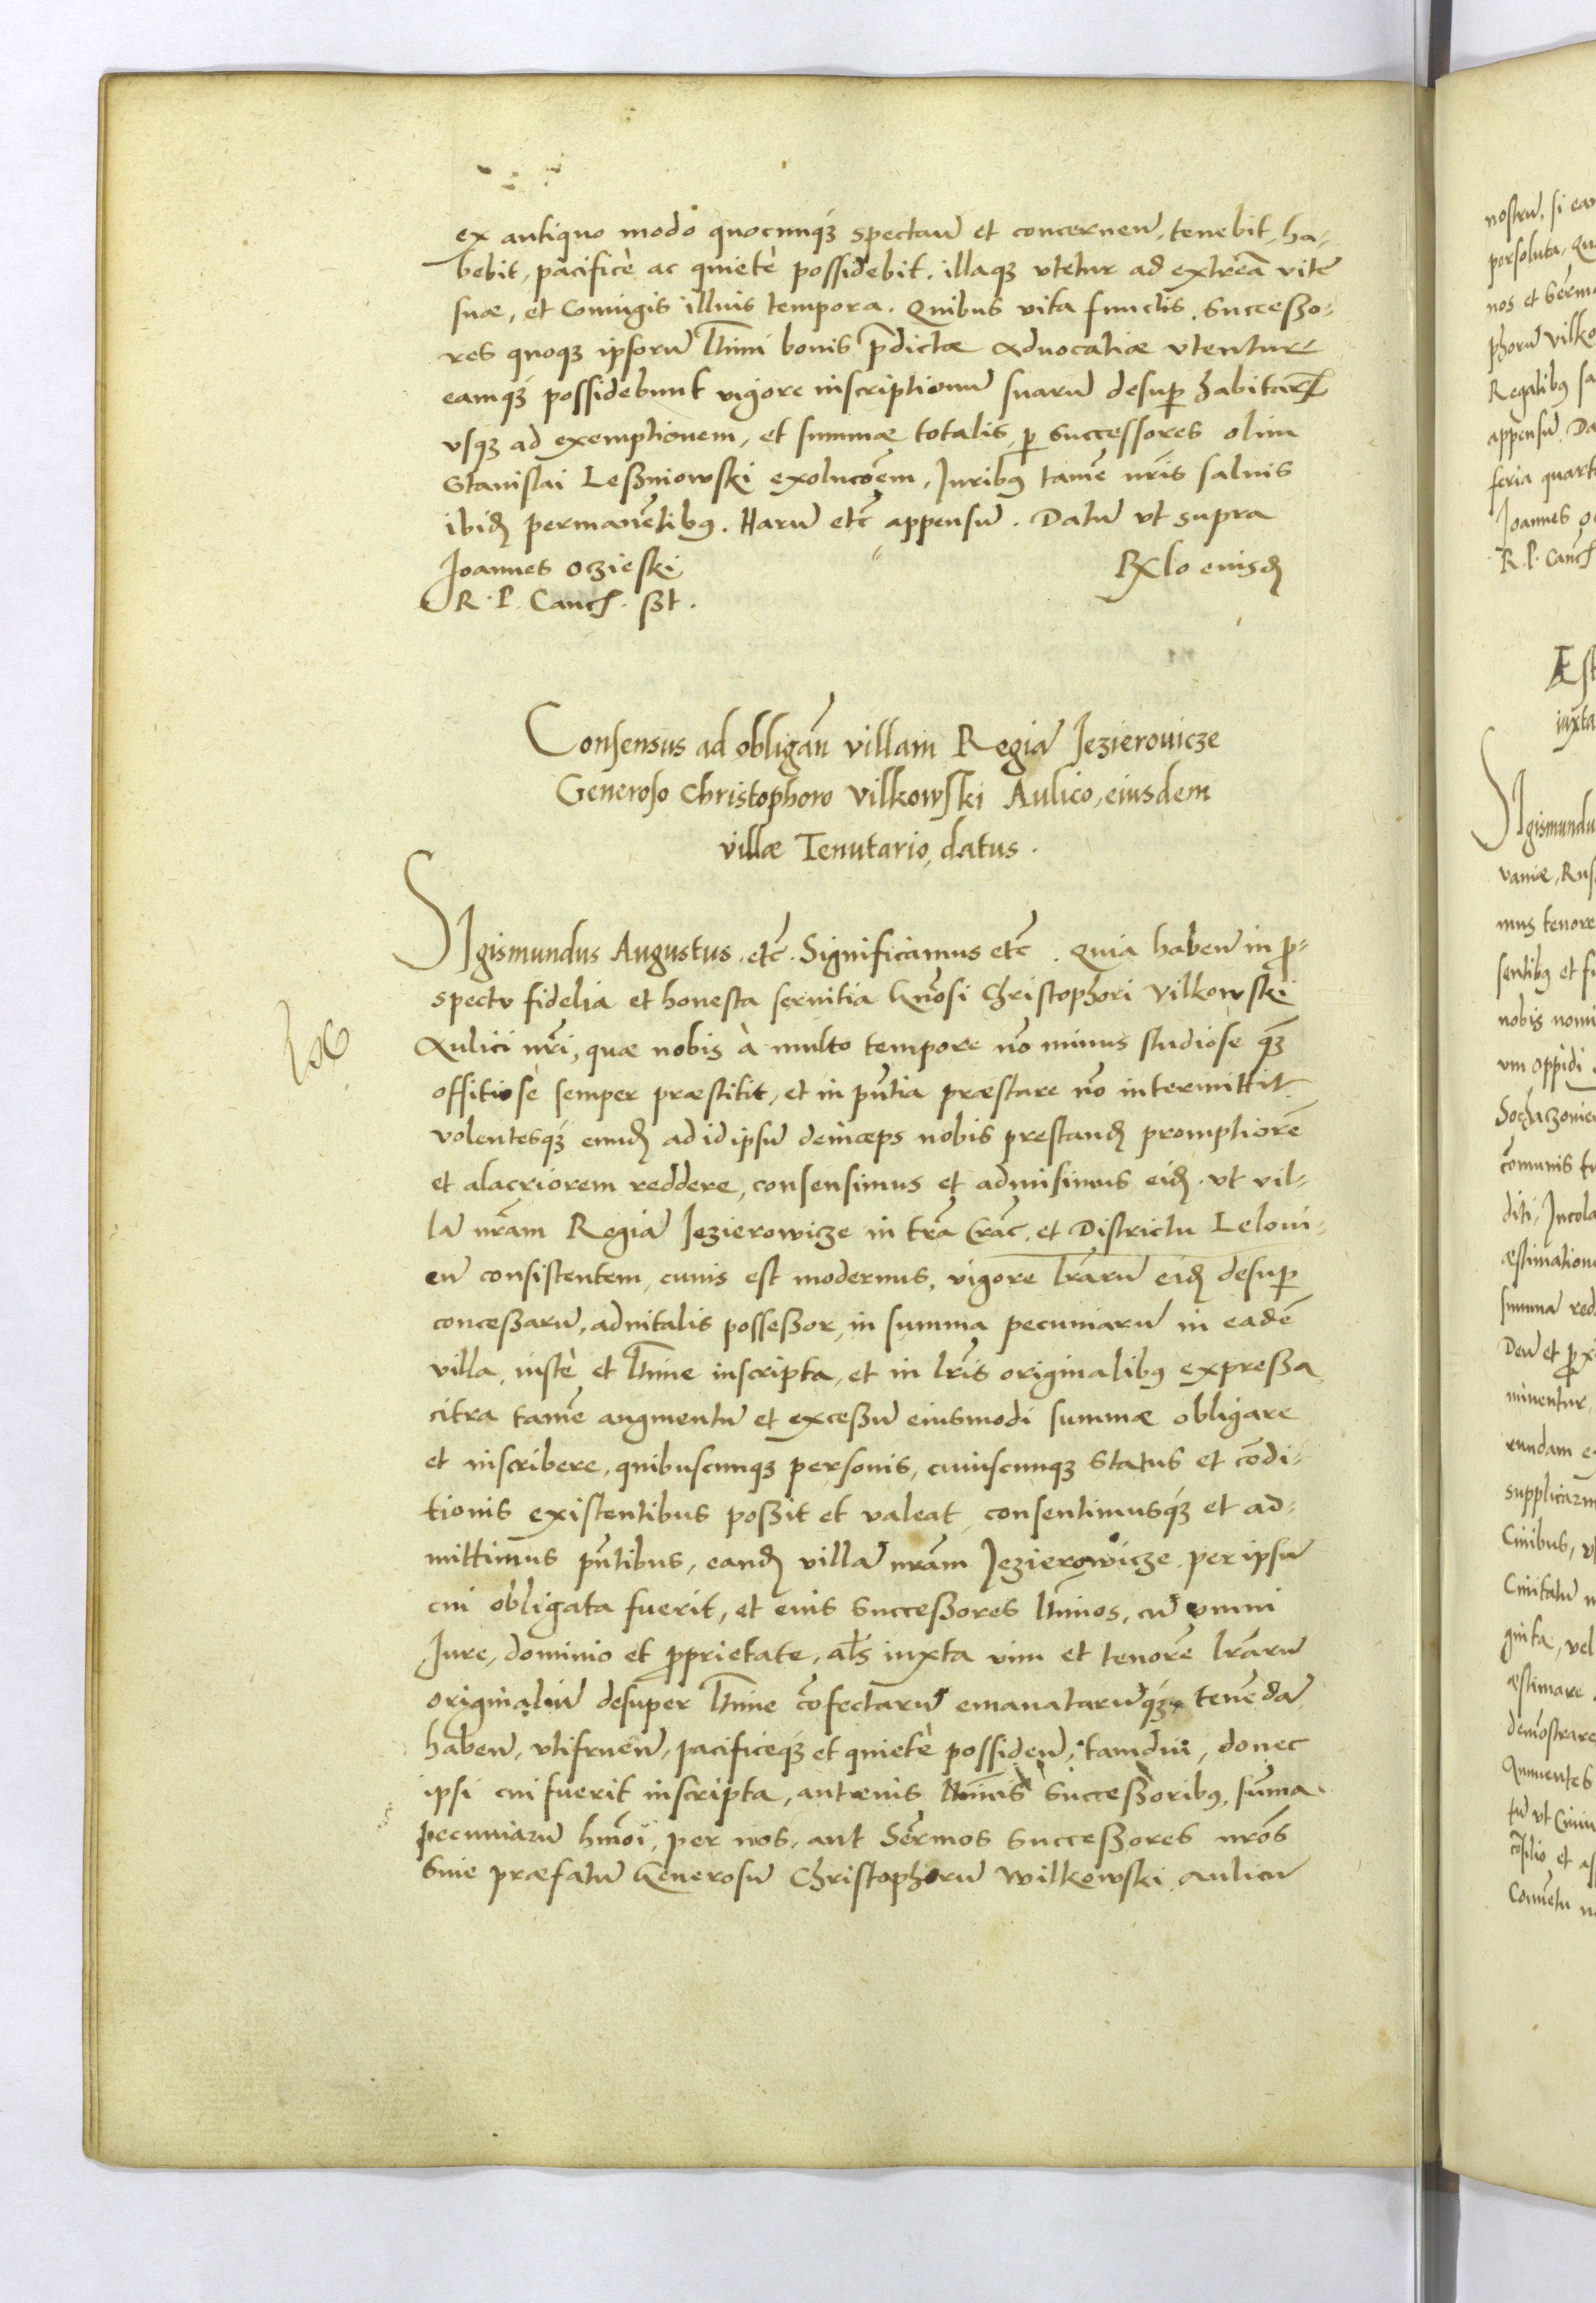 ex antiquo modo quocunq; spectan̄ et concernen̄, tenebit, ha-
bebit, pacificè ac quietè possidebit, illaq; vtetur ad extrēa vitę
suæ, et Coniugis illius tempora. Quibus vita functis, Successo-
res quoq; ipsorū ltimi bonis p̄dictæ Aduocatiæ vtentur
eamq; possidebunt vigore inscriptionū suarū desup habitarꝝ
vsq; ad exemptionem, et summæ totalis, p successores olim
Stanislai Leßniowski exolucōem, Juribꝰ tamē nr̄is saluis
ibid permanētibꝰ. Harū etc̄ appensū. Datū vt supra
Joannes Oczieski
R. P. Canc. ßt.
Rlo eiusd
Consensus ad obligan̄ villam Regiā Jezierouicze
Generoso Christophoro Vilkowski Aulico, eiusdem
villæ Tenutario, datus.
Sigismundus Augustus, etc̄. Significamus etc̄. Quia haben̄ in p-
spectu fidelia et honesta seruitia Gn̄osi Christophori Vilkowski
Aulici nr̄i, quæ nobis à multo tempore nō minus studiose q;
offitiosè semper præstitit, et in pn̄tia præstare nō intermittit
volentesq; eund ad id ipsū deinceps nobis prestand promptiorē
et alacriorem reddere, consensimus et admisimus eid, vt vil-
lā nr̄am Regiā Jezierowicze in tr̄a Crac̄. et Districtu Leloui-
en̄ consistentem, cuius est modernus, vigore lr̄arū eid desup
conceßarū, aduitalis posseßor, in summa pecuniarū in eadē
villa, iustè et ltime inscripta, et in lr̄is originalibꝰ expreßa
citra tamē augmentū et exceßū eiusmodi summæ obligare
et inscribere, quibuscunq; personis, cuiuscunq; status et cōdi-
tionis existentibus poßit et valeat, consentimusq; et ad-
mittimus pn̄tibus, eand villā nr̄am Jezierowicze per ipsū
cui obligata fuerit, et eius Succeßores ltimos, cū omni
Jure, dominio et pprietate, als iuxta vim et tenorē lr̄arū
originaliū desuper ltime cōfectarū emanatarūq; tenēdā
haben̄, vtifruen̄, pacificeq; et quietè possiden̄, tamdiu, donec
ipsi cui fuerit inscripta, aut eius ltimis Succeßoribꝰ, sūma
pecuniarū hmōi, per nos, aut Ser̄mos Succeßores nrōs
Siue præfatū Generosū Christophorū Wilkowski Aulicū
nostrū, si ea
persoluta, Qu
nos et Serm
phorū Vilko
Regalibꝰ sa
appensū. Da
feria quart
Joannes O
R. P. Canc
Æst
iuxta
Sigismundu
uaniæ, Rus
mus tenore
sentibꝰ et
nobis nomi
um oppidi
Sochaczouie
cōmunis
diti, Incola
æstimation
summā red
Den̄ et
minentur,
rundam e
supplicarū
Ciuibus, v
Ciuitatū
ginta, vel
æstimare
demōstrare
Annuentes
tū vt Ciui
cōsilio et as
Conuētu